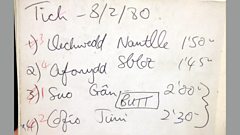 Tich - 8/2/80.
1) 3 Llechwedd Nantlle 1'50"
2) 4 Afonydd 1'45"
3) 1 Suo Gân BUTT 2'00"
4) 2 Cofio Timi 2'30"